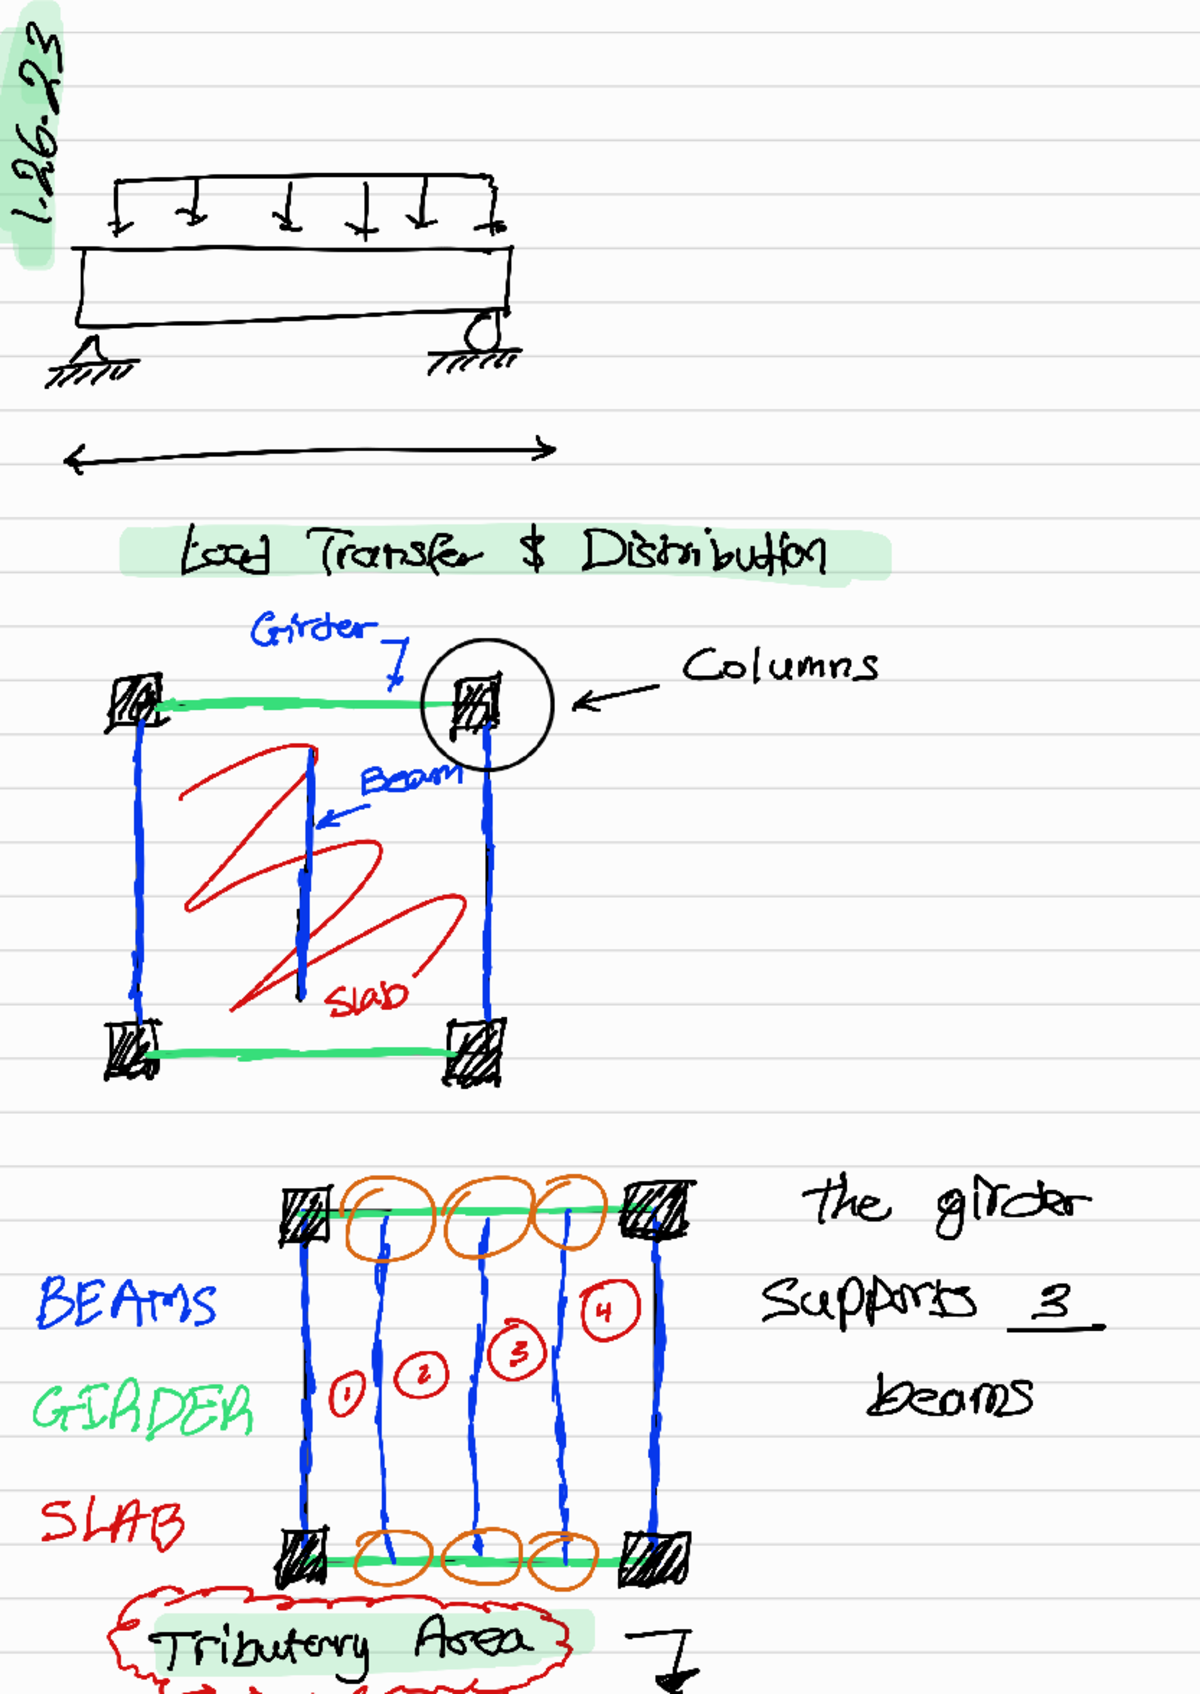 1.26.23
Load Transfer & Distribution
Girder
Columns
Beam
Slab
the girder
supports 3
beams
BEAMS
GIRDER
SLAB
1
2
3
4
Tributary Area